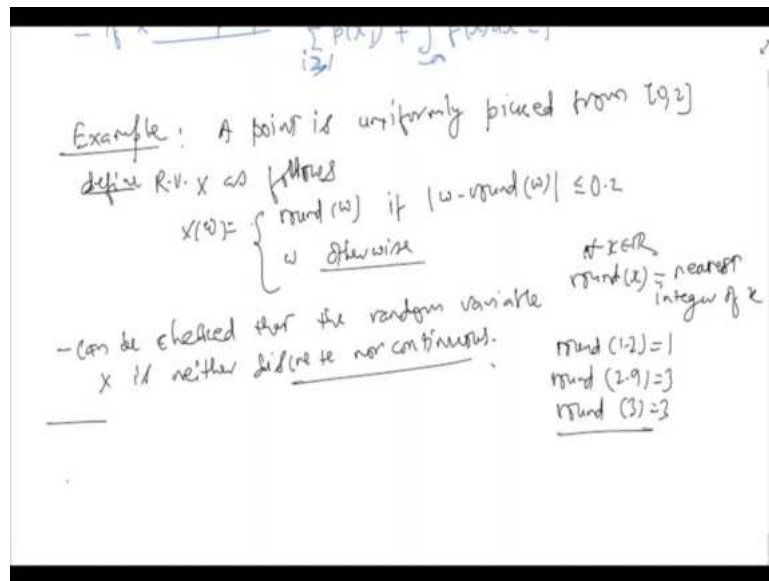 Σ p(x) + ∫ p(x)dx =
i≥1
Example: A point is uniformly picked from [0,2]
define R.V. X as follows
X(ω) = { round (ω) if |ω-round(ω)| ≤ 0.2
ω otherwise
∀ x∈ℝ
round(x) = nearest
integer of x
- can be checked that the random variable
X is neither discrete nor continuous.
round (1.2) = 1
round (2.9) = 3
round (3) = 3